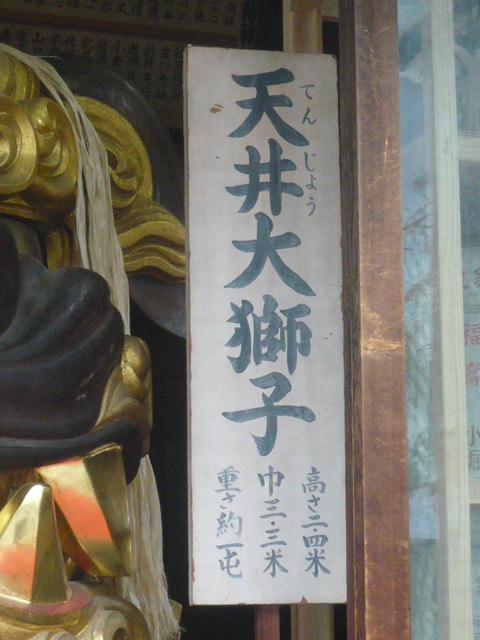 天井大獅子
てんじょう
高さ二・四米
巾三・三米
重さ約一屯
福
寿